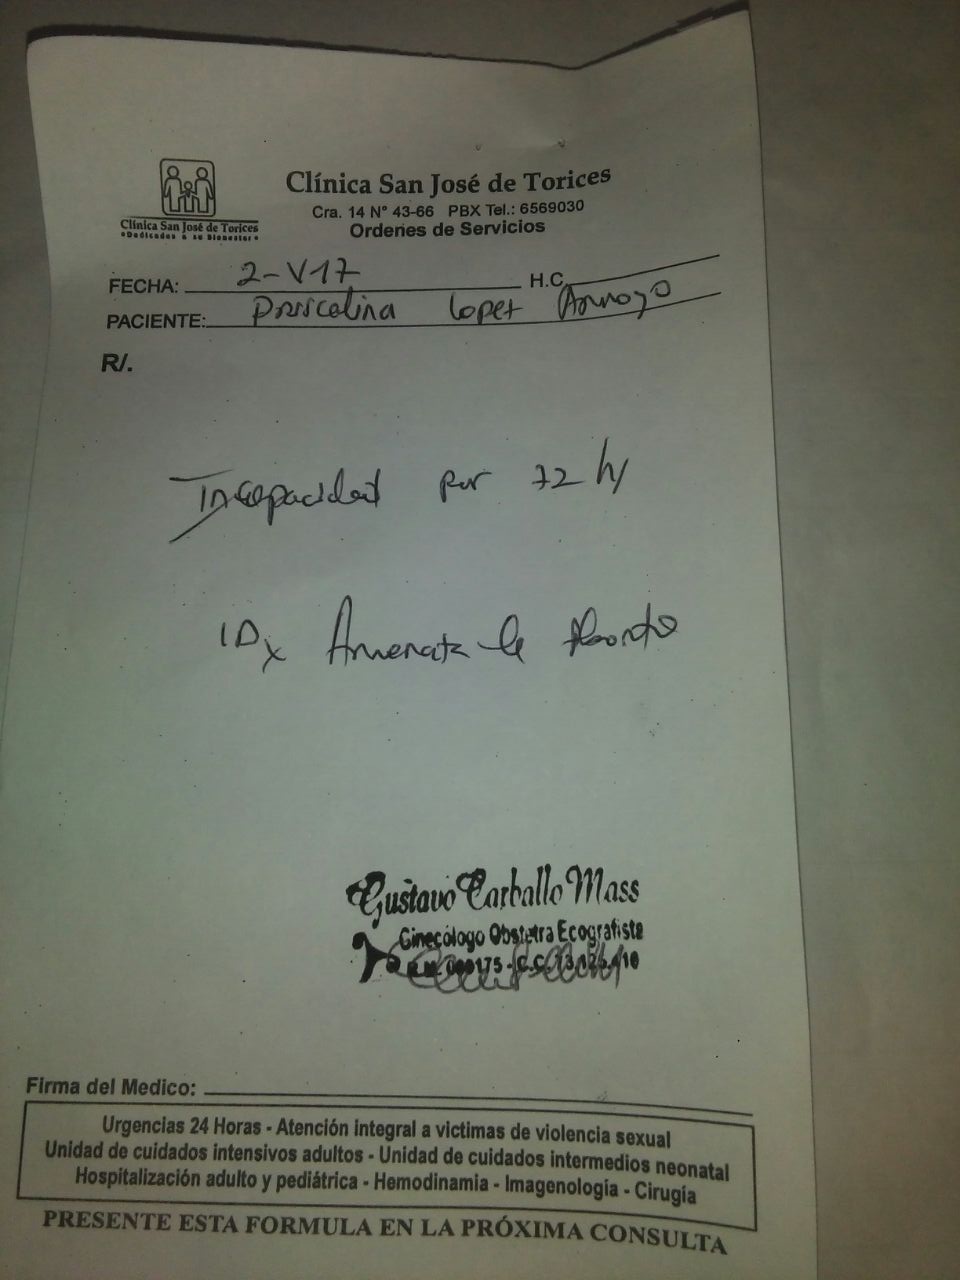 Clínica San José de Torices
Cra. 14 N° 43-66 PBX Tel.: 6569030
Ordenes de Servicios
Clínica San José de Torices
Dedicados a su Bienestar
FECHA: 2-V17 H.C.
PACIENTE: Lopez Arroyo
R/.
Incapacidad por 72 h/
IDx Amenaza de Aborto
Gustavo Carballo Mass
Ginecólogo Obstetra Ecografista
Firma del Medico:
Urgencias 24 Horas - Atención integral a victimas de violencia sexual
Unidad de cuidados intensivos adultos - Unidad de cuidados intermedios neonatal
Hospitalización adulto y pediátrica - Hemodinamia - Imagenología - Cirugía
PRESENTE ESTA FORMULA EN LA PRÓXIMA CONSULTA